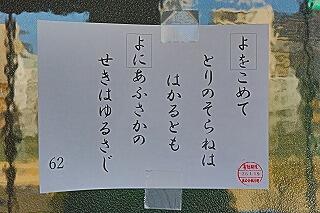 よをこめて
とりのそらねは
はかるとも
よにあふさかの
せきはゆるさじ
62